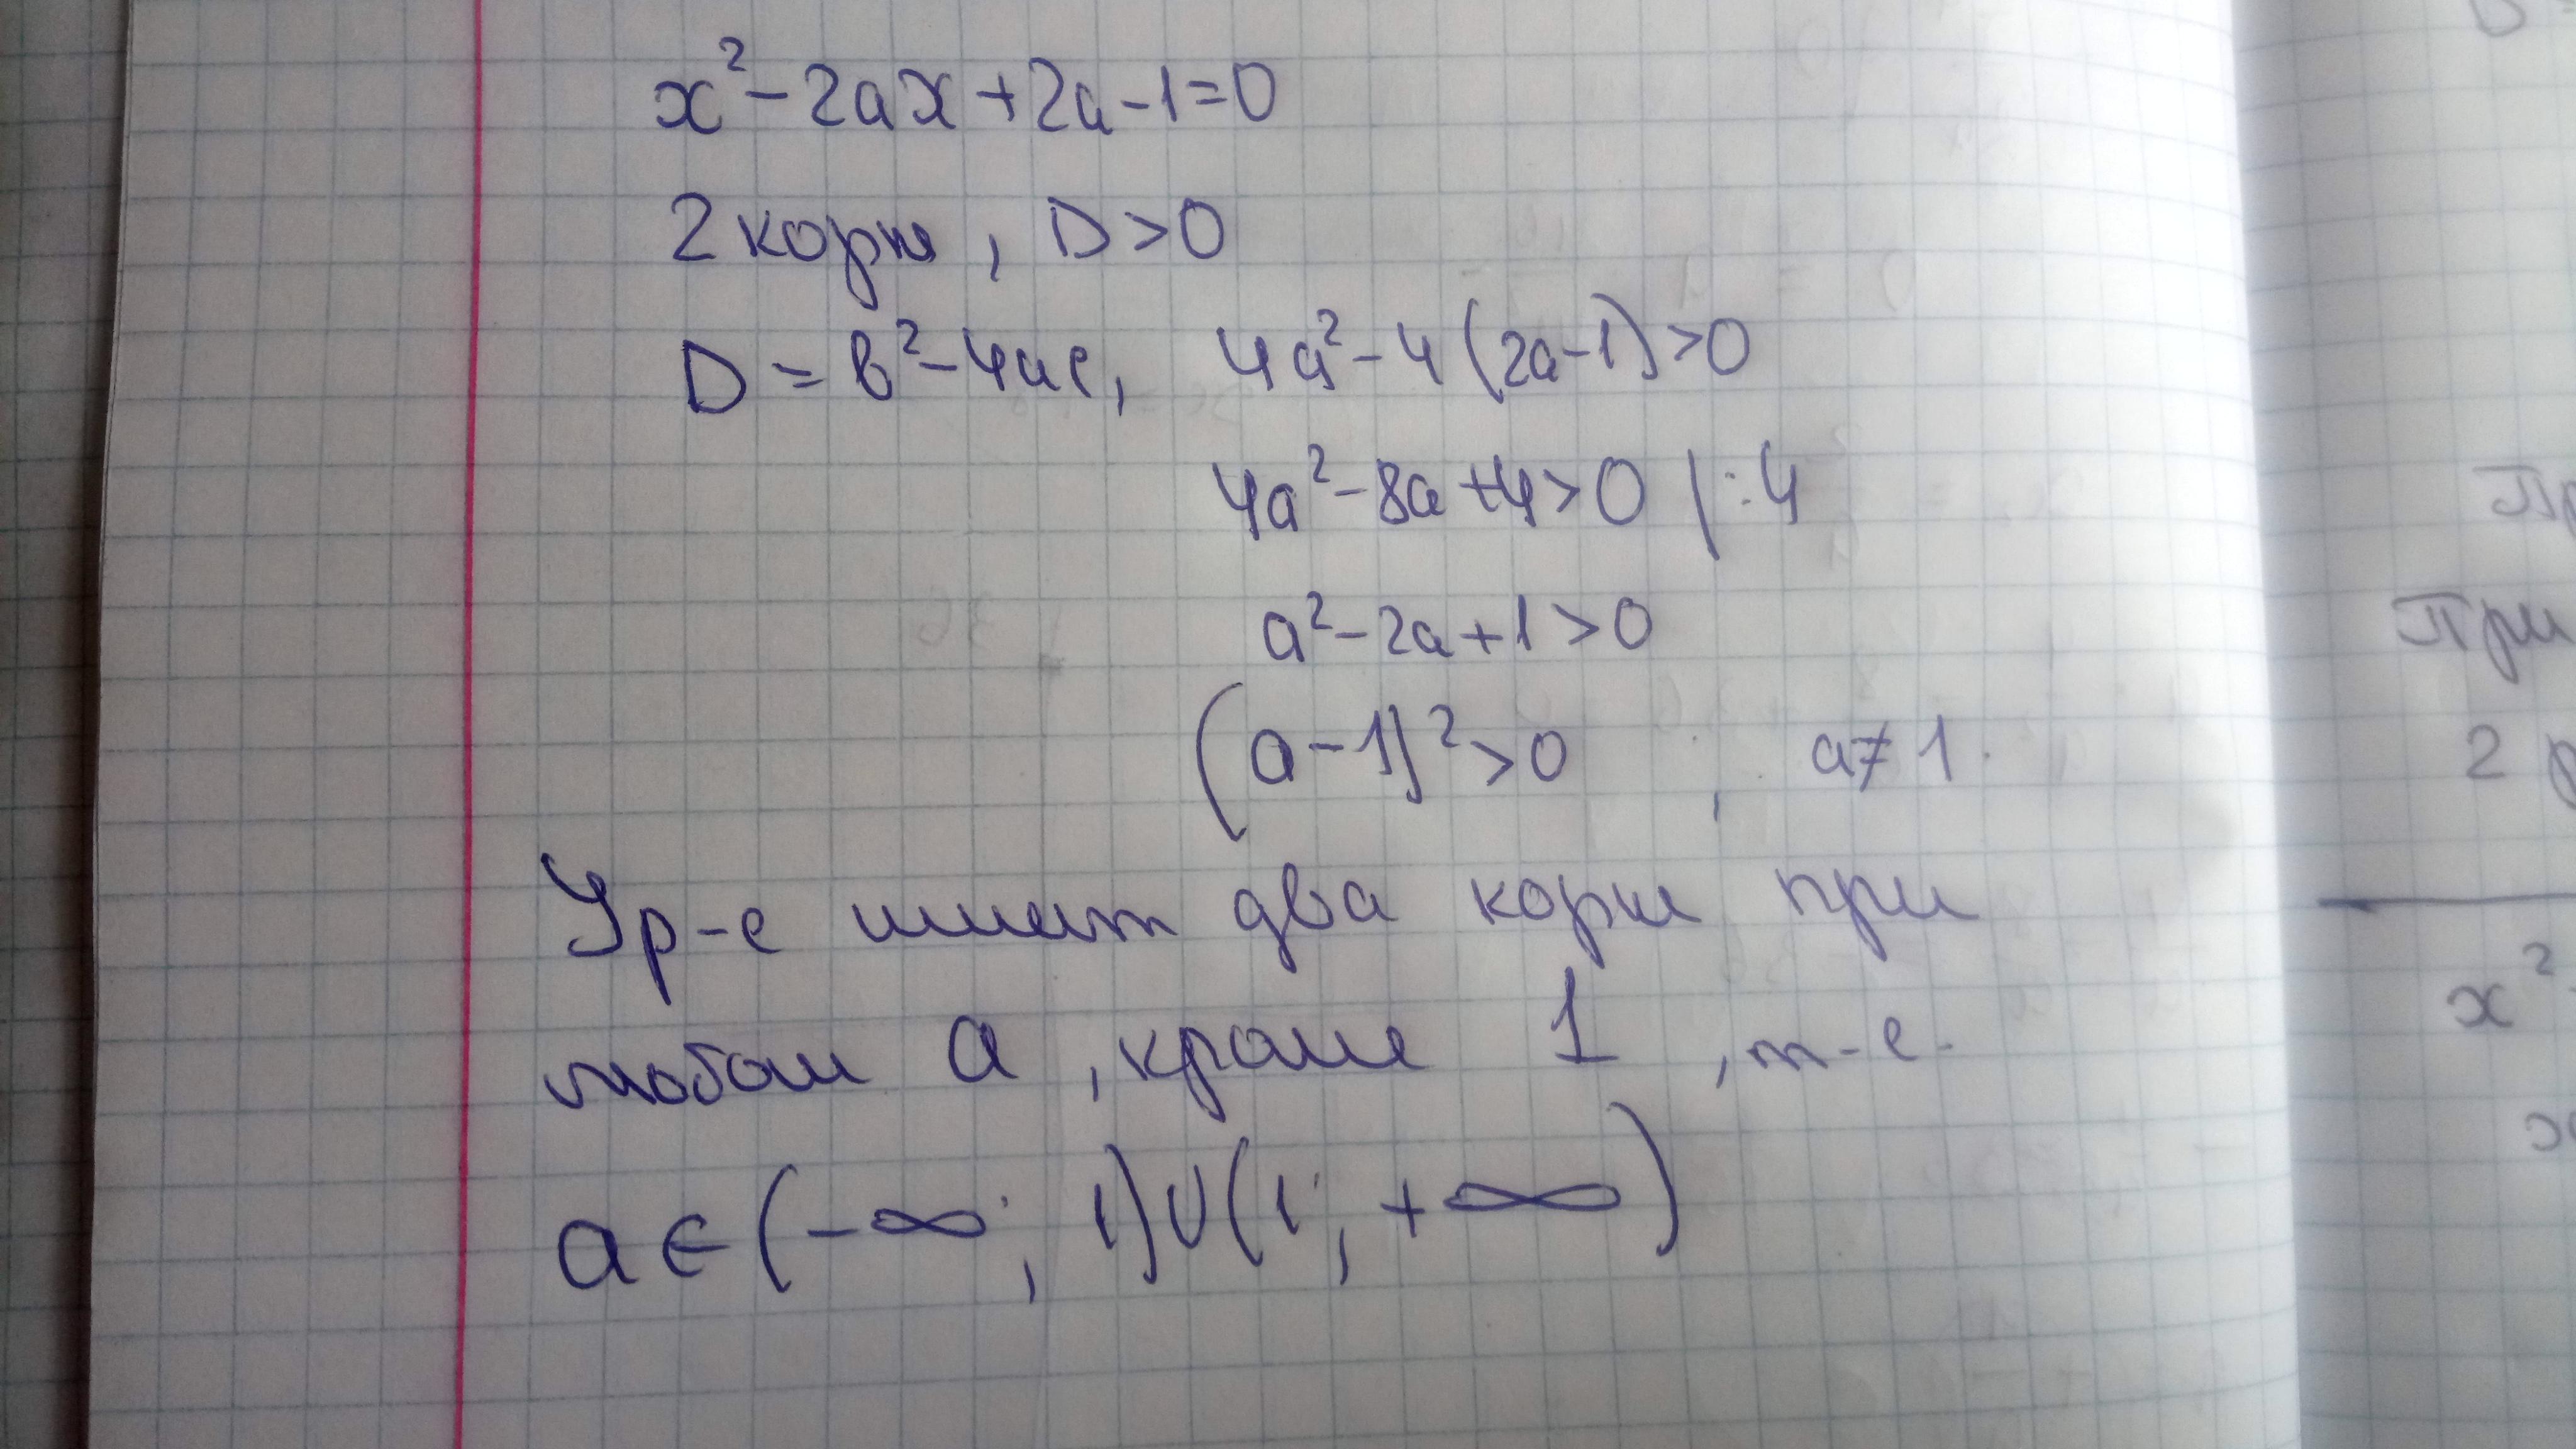 x² - 2ax + 2a - 1 = 0
2 корня, D > 0
D = b² - 4ac, 4a² - 4(2a-1) > 0
4a² - 8a + 4 > 0 | : 4
a² - 2a + 1 > 0
(a - 1)² > 0 , a ≠ 1.
Ур-е имеет два корня при
любом a, кроме 1, т-е.
a ∈ (-∞; 1) ∪ (1; +∞)
Пр
При
2 р
x²